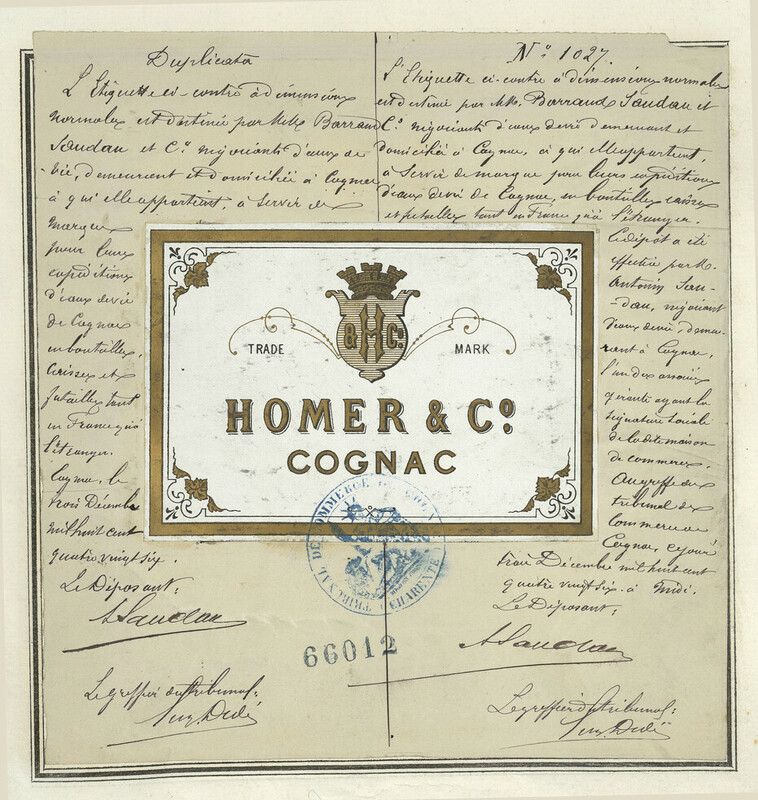 Duplicata
L'Etiquette ci-contre à dimensions
normales est destinée par MM. Barraud
Saudau et Cº négociants d'eaux de
vie, demeurant et domiciliés à Cognac
à qui elle appartient, à servir de
marque
pour leurs
expéditions
d'eaux de vie
de Cognac
en bouteilles,
caisses et
futailles tant
en France qu'à
l'étranger.
Cognac, le
trois Décembre
mil huit cent
quatre vingt six.
Le Déposant:
A Saudau
Le greffier du tribunal:
Nº 1027.
L'Etiquette ci-contre à dimensions normales
est destinée par MM. Barraud Saudau et
Cº négociants d'eaux de vie demeurant et
domiciliés à Cognac, à qui elle appartient,
à servir de marque pour leurs expéditions
d'eaux de vie de Cognac, en bouteilles caisses
et futailles tant en France qu'à l'étranger.
Ce dépôt a été
effectué par M.
Antonin Sau-
-dau, négociant
d'eaux de vie, demeu-
rant à Cognac,
l'un des associés
gérants ayant la
signature sociale
de la dite maison
de commerce.
Au greffe du
tribunal de
Commerce de
Cognac, ce jour
trois Décembre mil huit cent
quatre vingt six à midi.
Le Déposant:
A Saudau
Le greffier du tribunal:
& H Cº
TRADE MARK
HOMER & Cº
COGNAC
TRIBUNAL DE COMMERCE
CHARENTE
66012